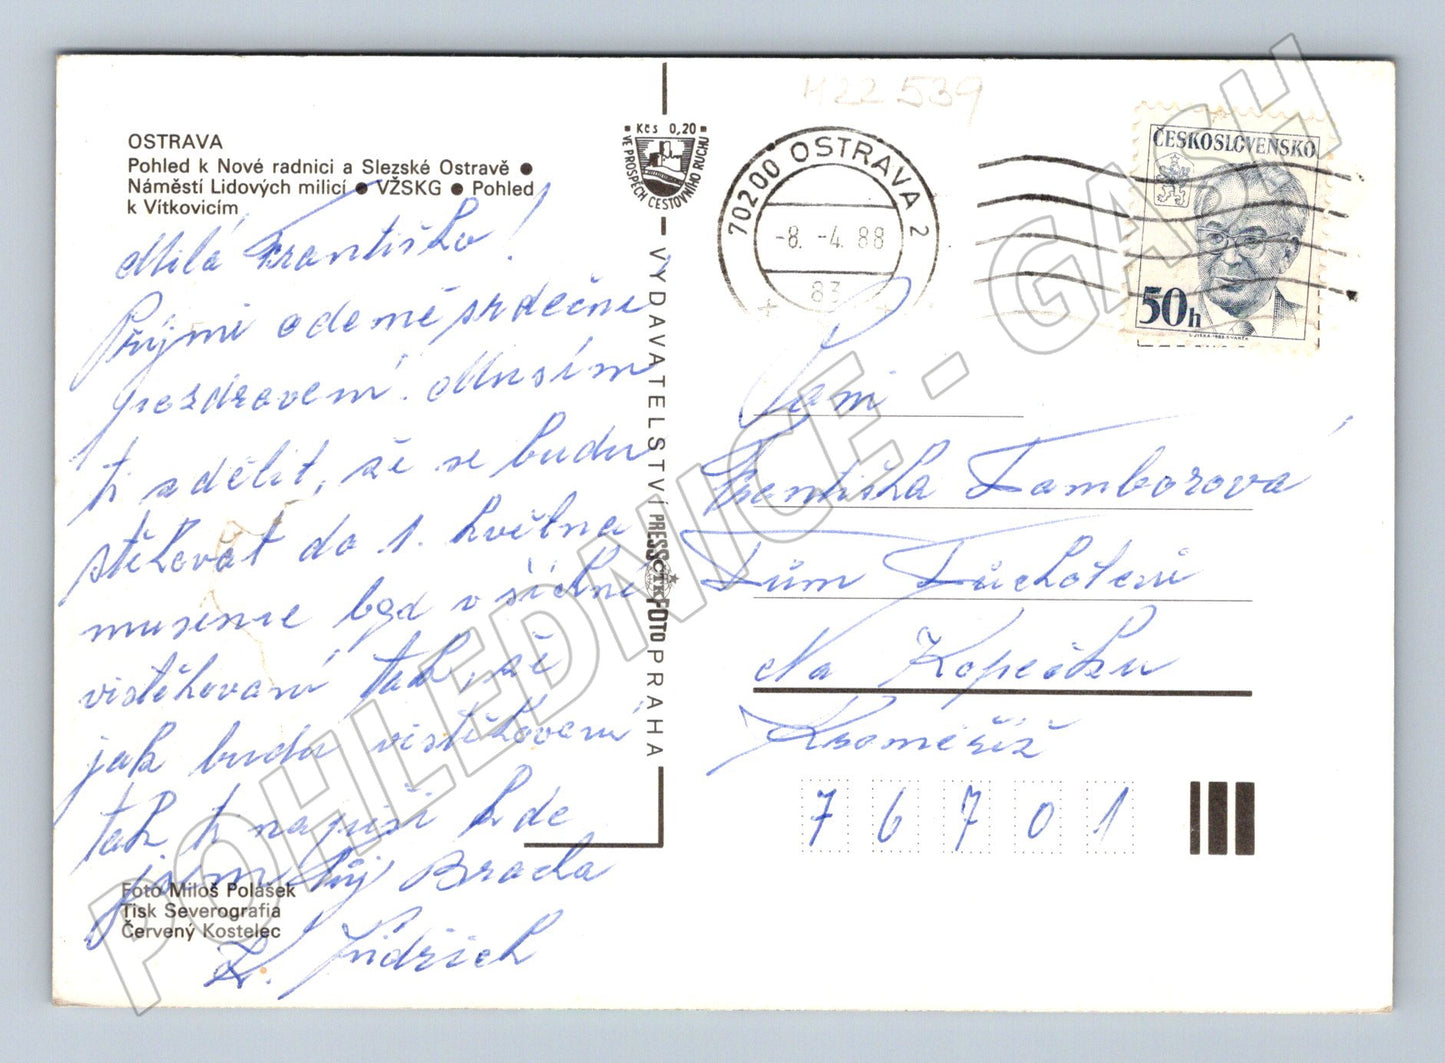 H22 539
OSTRAVA
Pohled k Nové radnici a Slezské Ostravě ●
Náměstí Lidových milicí ● VŽSKG ● Pohled
k Vítkovicím
Milá Františko!
Přijmi odemě srdečné
pozdravení. Musím
ti sdělit, že se budu
stěhovat do 1. května
museme byd všichni
vistěhovaní tak, že
jak budu vistěhovaní
tak ti napíši kde
jsem Tvůj Brada
Jindřich
Foto Miloš Polášek
Tisk Severografia
Červený Kostelec
Kčs 0,20
VE PROSPĚCH CESTOVNÍHO RUCHU
VYDAVATELSTVÍ PRESSFOTO PRAHA
ČTK
702 00 OSTRAVA 2
-8. -4. 88
83
ČESKOSLOVENSKO
50h
Paní
Františka Tamborová
Dům Důchotcu
Na Kopečku
Kroměříž
76701
POHLEDNICE - GASH